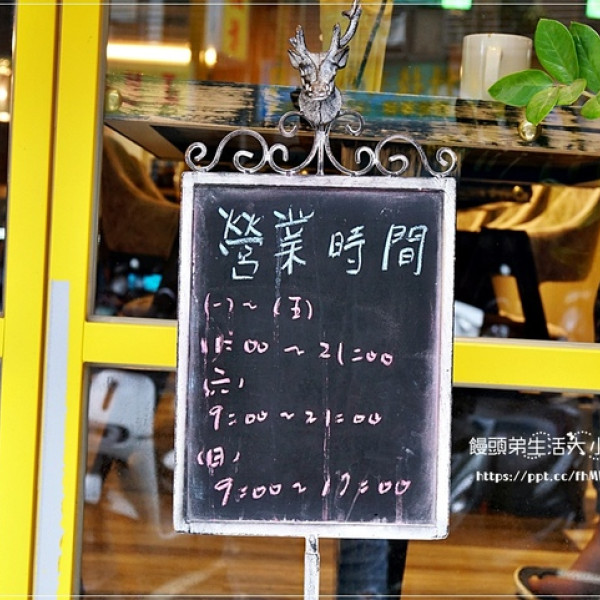 營業時間
(一)~(五)
11:00~21:00
(六)
9:00~21:00
(日)
9:00~17:00
饅頭弟生活大小
https://ppt.cc/fhM